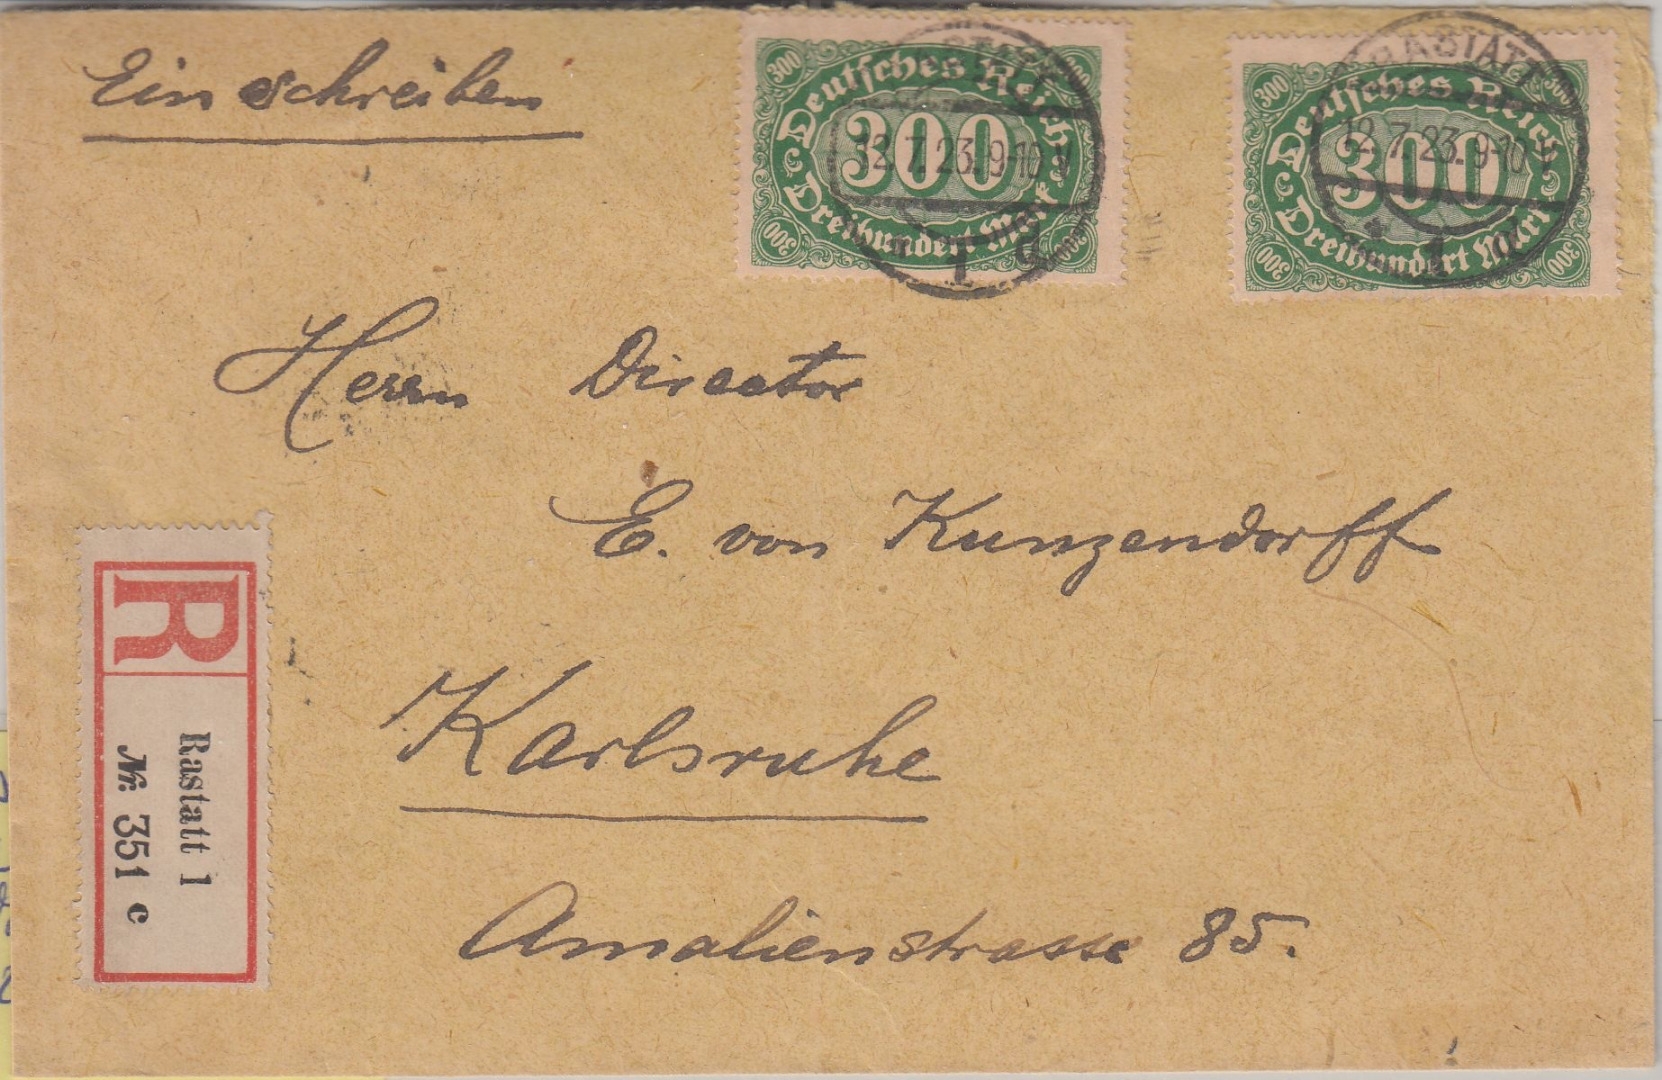 Einschreiben
300 300
Deutsches Reich
300
Dreihundert Mark
300 300
12.7.23.9-10 V
1 g
300 300
Deutsches Reich
300
Dreihundert Mark
300 300
RASTATT
12.7.23.9-10 V
* 1
Herrn Director
E. von Kunzendorff
Karlsruhe
Amalienstrasse 85.
R
Rastatt 1
Nr. 351 c